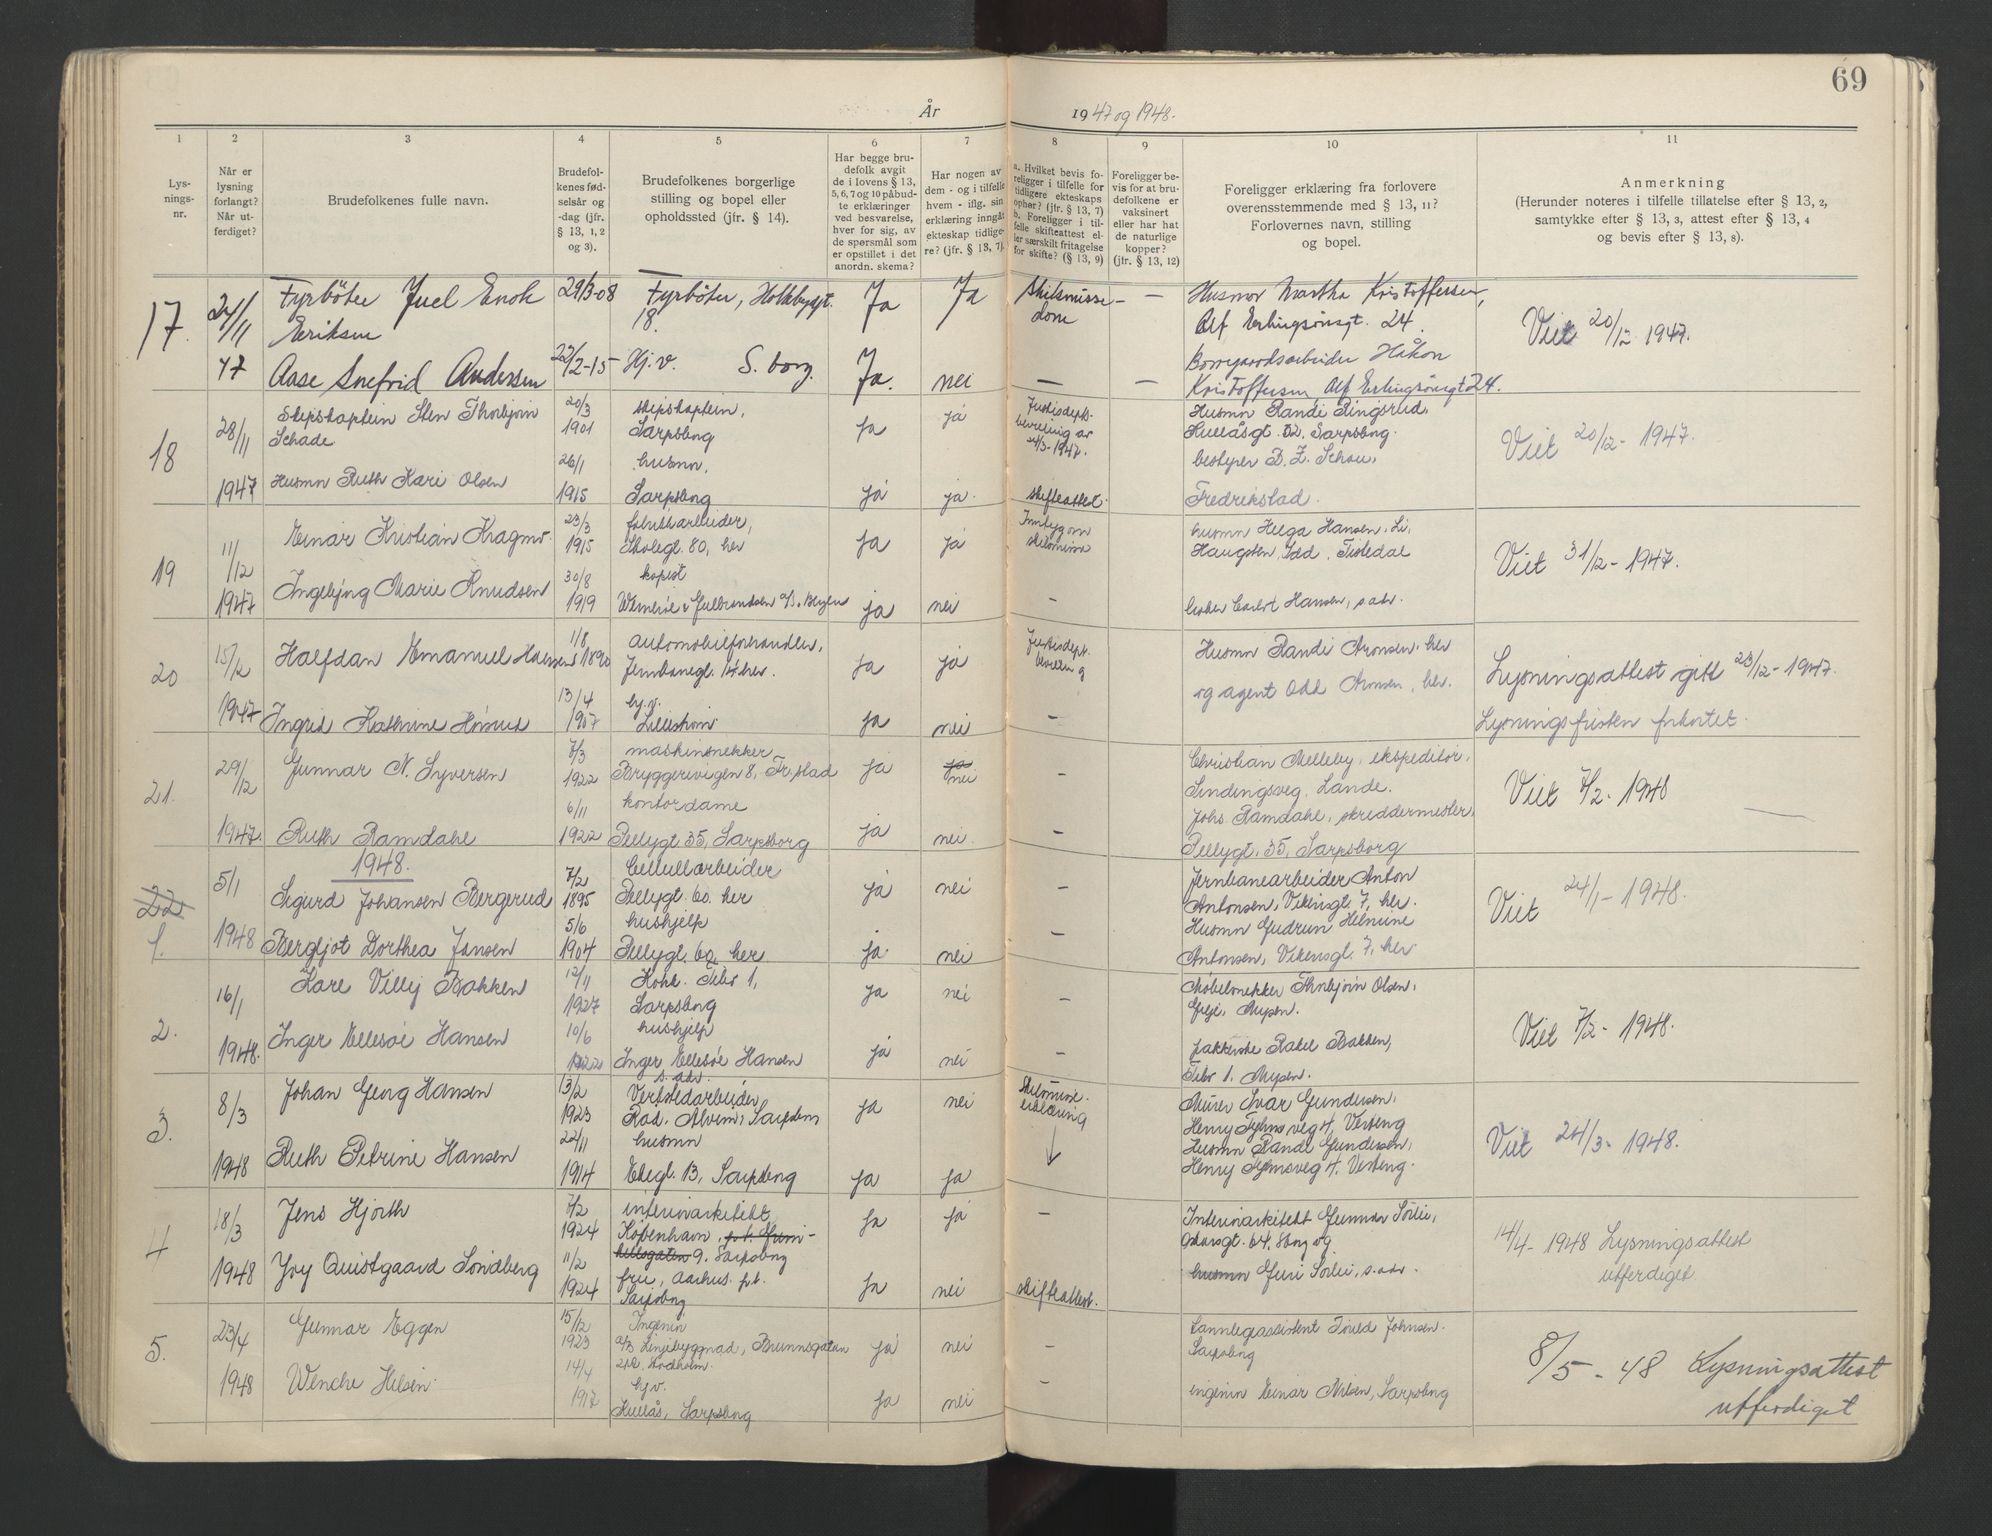 69
År 1947 og 1948.
1 2 3 4 5 6 7 8 9 10 11
Lysnings-
nr.
Når er
lysning
forlangt?
Når ut-
ferdiget?
Brudefolkenes fulle navn.
Brudefol-
kenes fød-
selsår og
-dag (jfr.
§ 13, 1, 2
og 3).
Brudefolkenes borgerlige
stilling og bopel eller
opholdssted (jfr. § 14).
Har begge bru-
defolk avgit
de i lovens § 13,
5, 6, 7 og 10 påbud-
te erklæringer
ved besvarelse,
hver for sig, av
de spørsmål som
er opstillet i det
anordn. skema?
Har nogen av
dem - og i tilfelle
hvem - iflg. sin
erklæring inngått
ekteskap tidlige-
re? (jfr. § 13, 7).
a. Hvilket bevis fo-
religger i tilfelle for
tidligere ekteskaps
ophør? (jfr. § 13, 7)
b. Foreligger i til-
felle skifteattest el-
ler særskilt fritagelse
for skifte? (§ 13, 9)
Foreligger be-
vis for at bru-
defolkene er
vaksinert
eller har hat
de naturlige
kopper?
(jfr. § 13, 12)
Foreligger erklæring fra forlovere
overensstemmende med § 13, 11?
Forlovernes navn, stilling
og bopel.
Anmerkning
(Herunder noteres i tilfelle tillatelse efter § 13, 2,
samtykke efter § 13, 3, attest efter § 13, 4
og bevis efter § 13, 8).
17. 24/11 47
Fyrbøter Juel Enok
Eriksen
29/3-08
Fyrbøter,
18.
Ja Ja
Skilsmisse-
dom
—
Husmor Martha Kristoffersen,
Alf Erlingsönsgt. 24.
Viet 20/12 1947.
Aase Snefrid Andersen
22/2-15
Hj.v. S.borg.
Ja. nei — —
Borregaardsarbeider Håkon
Kristoffersen Alf Erlingsönsgt 24.
18 28/11 1947
Skipskaptein Sten Thorbjørn
Schade
20/3
1901
skipskaptein,
Sarpsborg
ja ja
Justisdepts-
bevilling av
1947.
Husmor Randi Ringsrud,
Kullåsgt. 52, Sarpsborg.
Viet 20/12 - 1947.
Husmor Ruth Kari Olsen
26/1
1915
husmor,
Sarpsborg
ja ja.
skifteattest.
bestyrer Schou,
Fredrikstad.
19 11/12 1947
Einar Kristian
23/3
1915
fabrikkarbeider,
Skolegt. 80, her
ja ja
skilsmisse
husmor Helga Hansen, Li,
Haugsten, Idd, Tistedal
Viet 31/12 - 1947.
Ingebjørg Marie Knudsen
30/8
1919
ja nei —
Hansen, s. adr.
20 15/12 1947
Halfdan Emanuel Hansen
1/8 1890
automobilforhandler,
Jernbanegt. 14 her.
ja ja
Justisdept.
bevilling
Husmor Randi Aronsen, her
og agent Odd Aronsen, her.
Lysningsattest gitt 23/12 - 1947.
Lysningsfristen forkortet.
Ingrid Kathrine
13/4
1907
hj.v.
Lillestrøm
ja nei —
21. 29/12 1947.
Gunnar N. Syversen
7/3
1922
maskinsnekker
Bryggerivigen 8, Fr.stad
ja ja nei —
Christian Melleby, ekspeditør,
Sindingsveg, Lande.
Viet 7/2 - 1948
Ruth Ramdahl
6/11
1922
kontordame
Pellygt 35, Sarpsborg
ja nei. —
Johs. Ramdahl, skreddermester,
Pellygt. 35, Sarpsborg
1948.
22 1. 5/1 1948
Sigurd Johansen Bergerud
7/2
1895
Cellullarbeider
Pellygt. 60. her
ja nei —
Jernbanearbeider Anton
Antonsen, Vikingt 7, her.
Viet 24/1 - 1948.
Bergljot Dorthea Jansen
5/6
1904
hushjelp
Pellygt. 60, her
ja. nei —
Husmor Gudrun Helmine
Antonsen, Vikensgt. 7, her
2. 16/1 1948.
Kåre Villy Bakken
12/11
1927
1,
Sarpsborg
ja nei —
Møbelsnekker Thorbjørn Olsen,
Viet 7/2 - 1948.
Inger Ellesøe Hansen
10/6
hushjelp
Inger Ellesøe Hansen
s. adr.
ja nei —
Rakel Bakken,
3. 8/3 1948
Johan Georg Hansen
13/2
1923
Verkstedarbeider
Rad. Alvim, Sarpsborg
ja nei
Skilsmisse-
erklæring
Murer Ivar Gundersen,
Viet 24/3 - 1948.
Ruth Petrine Hansen
22/11
1914
husmor
13, Sarpsborg
ja ja
Husmor Randi Gundersen,
4 18/3 1948
Jens Hjorth
7/2
1924
interiørarkitekt
København,
9. Sarpsborg
ja ja —
Interiørarkitekt Gunnar Sörlie,
Oskarsgt. 64, Sborg og
14/4 - 1948 Lysningsattest
utferdiget
Joy Quistgaard Söndberg
11/2
1924
fru, Aarhus. p.t.
Sarpsborg
ja nei
skifteattest.
husmor Guri Sörlie, s. adr.
5. 23/4 1948
Gunnar Eggen
15/12
1923
Ingeniør
A/B Linjebyggnad, Brunnsgatan
Stockholm.
ja nei —
tannlegeassistent Johnsen.
Sarpsborg
8/5 - 48 Lysningsattest
utferdiget
Wenche
14/4
1917
hj.v.
Kullås, Sarpsborg
ja nei —
ingeniør Einar Nilsen, Sarpsborg